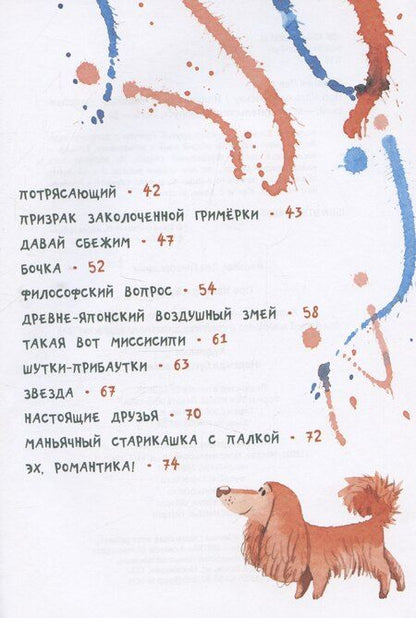 ПОТРЯСАЮЩИЙ • 42
ПРИЗРАК ЗАКОЛОЧЕННОЙ ГРИМЁРКИ • 43
ДАВАЙ СБЕЖИМ • 47
БОЧКА • 52
ФИЛОСОФСКИЙ ВОПРОС • 54
ДРЕВНЕ-ЯПОНСКИЙ ВОЗДУШНЫЙ ЗМЕЙ • 58
ТАКАЯ ВОТ МИССИСИПИ • 61
ШУТКИ-ПРИБАУТКИ • 63
ЗВЕЗДА • 67
НАСТОЯЩИЕ ДРУЗЬЯ • 70
МАНЬЯЧНЫЙ СТАРИКАШКА С ПАЛКОЙ • 72
ЭХ, РОМАНТИКА! • 74